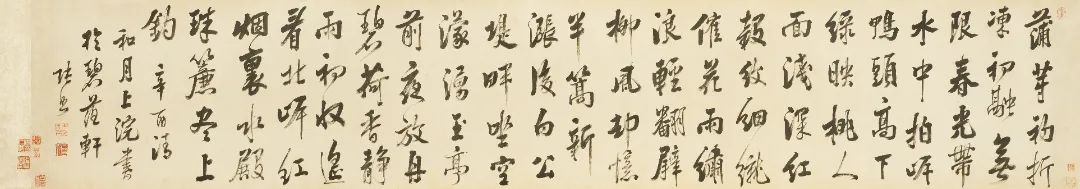 蒲芽初折
凍初融無
限春光帶
水中拍岸
鴨頭高下
綠映桃人
面淺深紅
縠紋細織
催花雨繡
浪輕翻襞
柳風却憶
半篙新
漲後白公
堤畔坐空
濛湧玉亭
前夜放舟
碧荷香靜
雨初收遙
看北岸紅
烟裏水殿
珠簾盡上
鈎 辛酉清
和月上浣書
於碧蔭軒